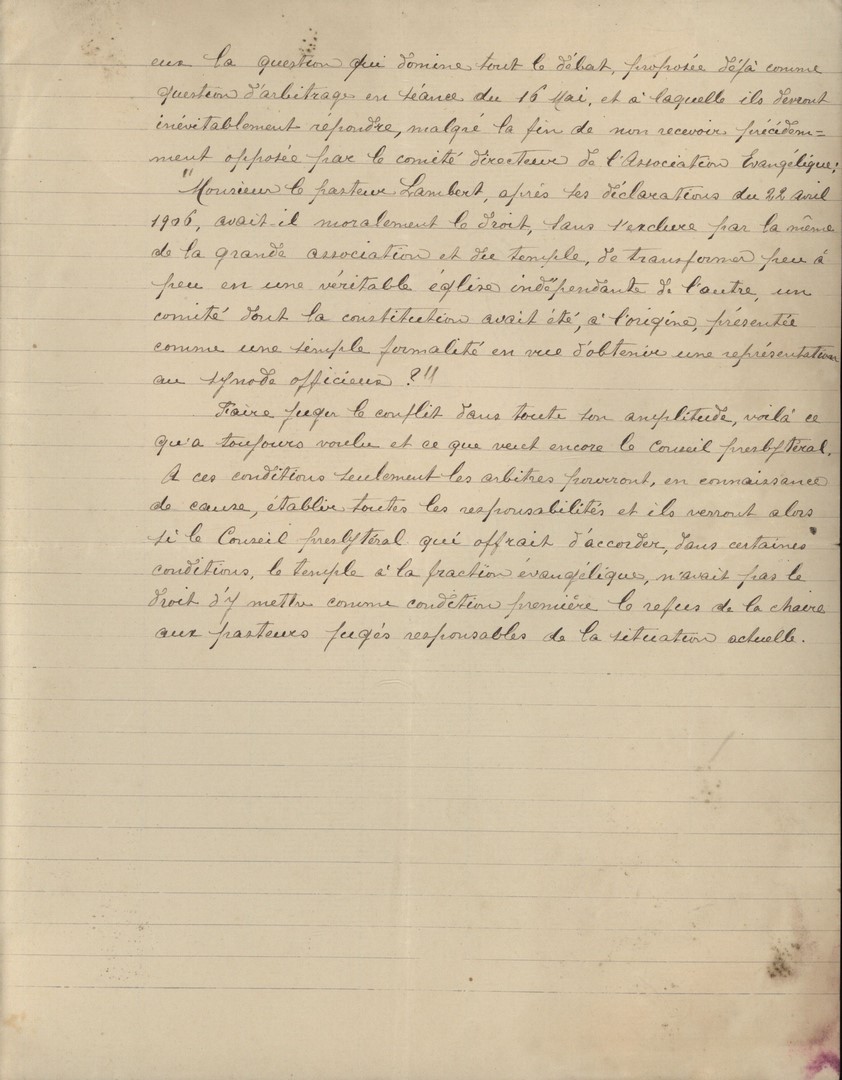 eux la question qui domine tout le débat, proposée déjà comme
question d'arbitrage en séance du 16 Mai, et à laquelle ils devront
inévitablement répondre, malgré la fin de non recevoir précédem=
ment opposée par le comité directeur de l'Association Evangélique:
"Monsieur le pasteur Lambert, après ses déclarations du 22 avril
1906, avait-il moralement le droit, sans s'exclure par la même
de la grande association et du temple, de transformer peu à
peu en une véritable église indépendante de l'autre, un
comité dont la constitution avait été, à l'origine, présentée
comme une simple formalité en vue d'obtenir une représentation
au synode officieux ?"
Faire juger le conflit dans toute son amplitude, voilà ce
qu'a toujours voulu et ce que veut encore le Conseil presbytéral.
A ces conditions seulement les arbitres pourront, en connaissance
de cause, établir toutes les responsabilités et ils verront alors
si le Conseil presbytéral qui offrait d'accorder, dans certaines
conditions, le temple à la fraction évangélique, n'avait pas le
droit d'y mettre comme condition première le refus de la chaire
aux pasteurs jugés responsables de la situation actuelle.